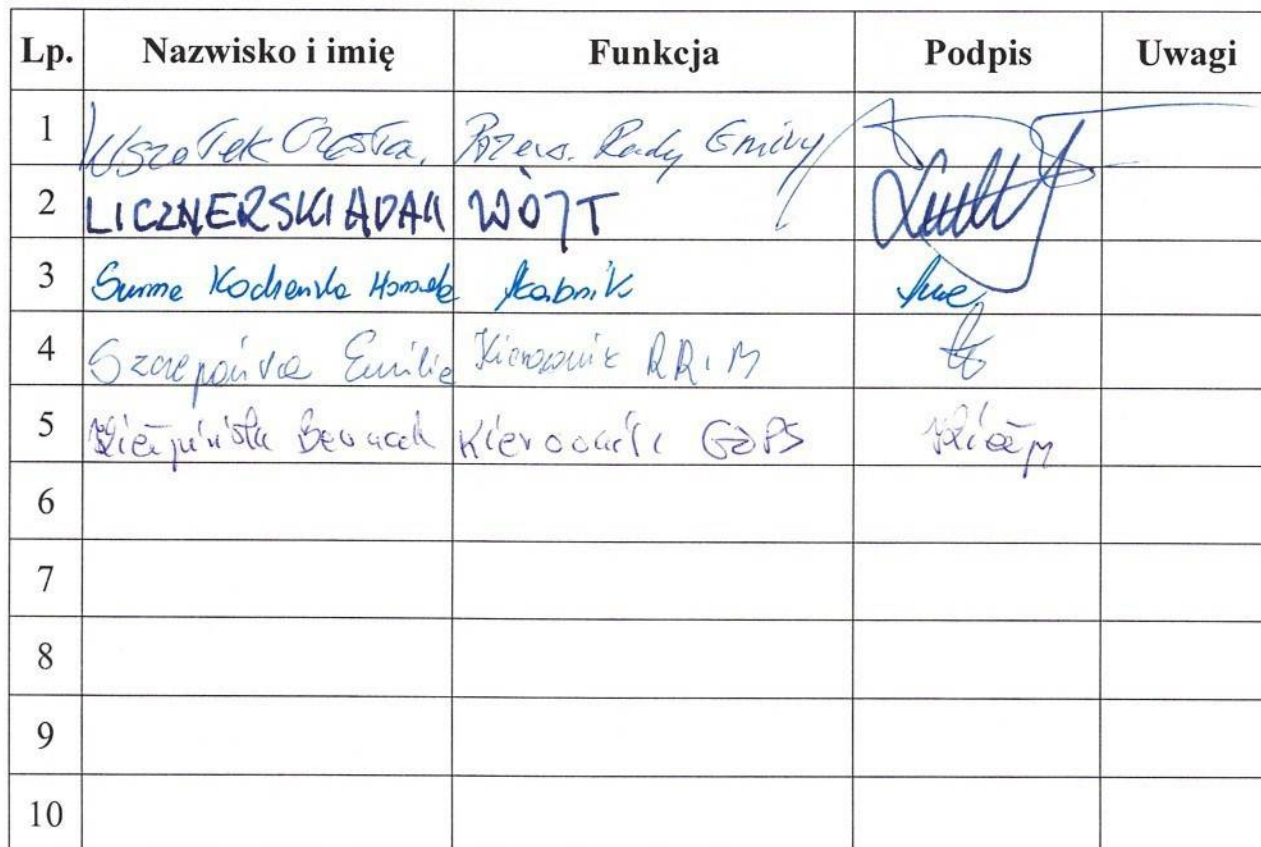 Lp. Nazwisko i imię Funkcja Podpis Uwagi
1 Wszołek Czesław Przew. Rady Gminy
2 LICZNERSKI ADAM WÓJT
3 Surma Skarbnik
4 Szczepańska Emilia Kierownik RRiM
5 Kierownik GOPS
6
7
8
9
10